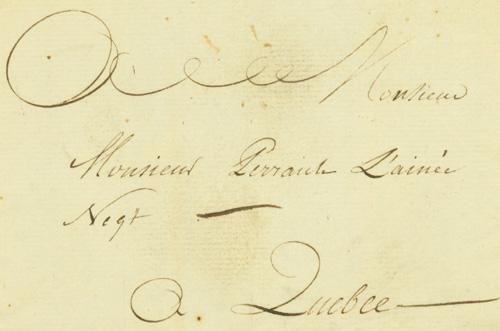 A Monsieur
Monsieur Perrault L'ainé
Negt
a Quebec